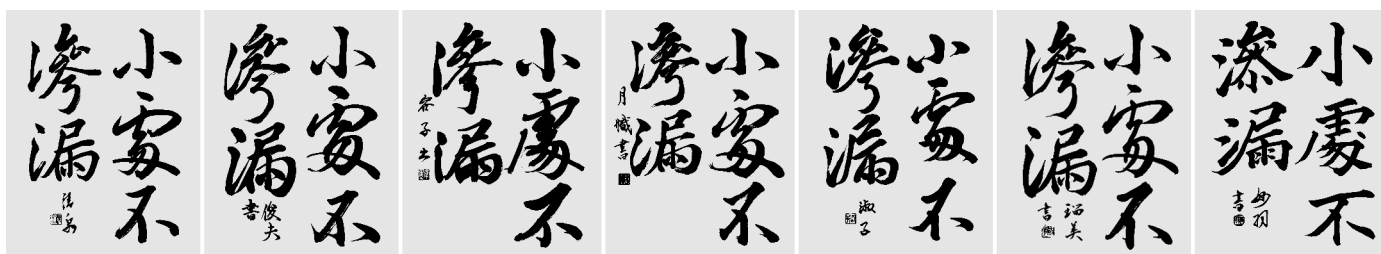 小處不
滲漏
小處不
滲漏
俊夫
書
小處不
滲漏
容子書
小處不
滲漏
月書
小處不
滲漏
淑子
小處不
滲漏
美
書
小處不
滲漏
書